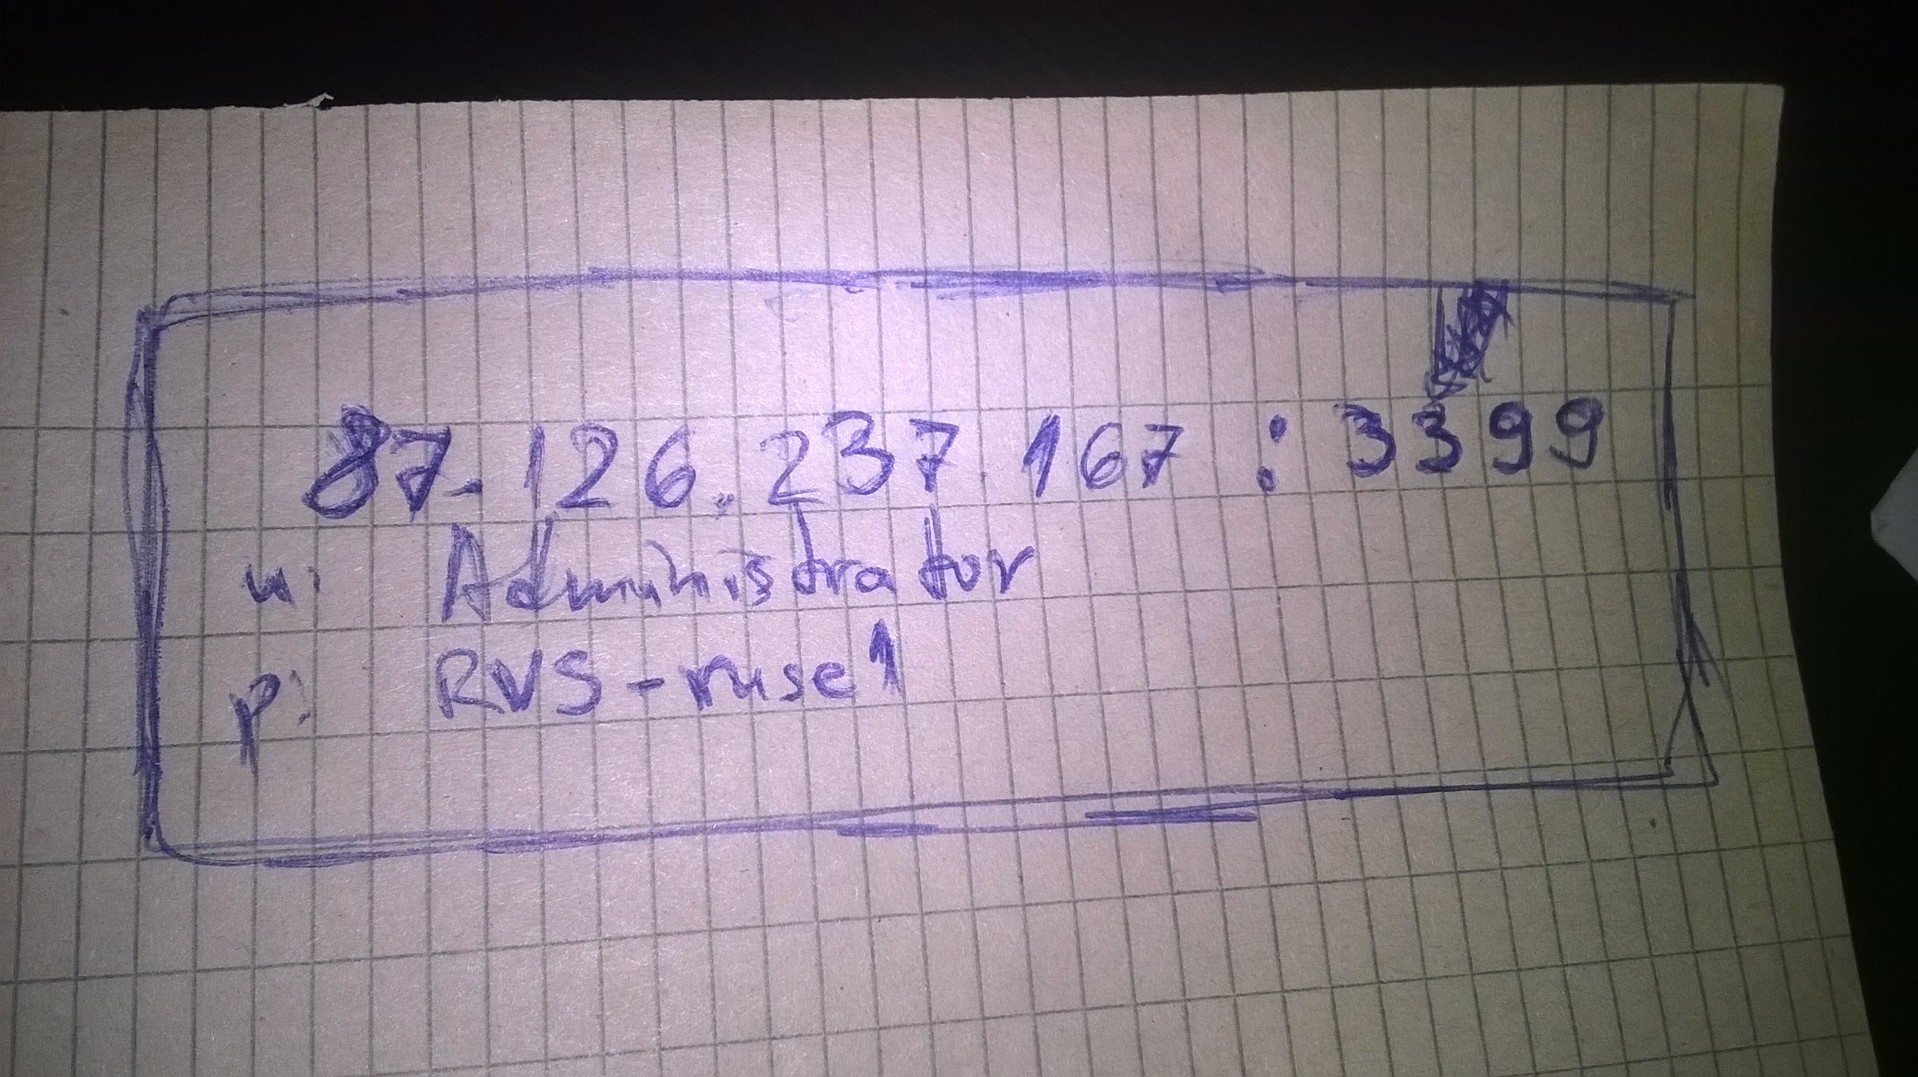 87.126.237.167 : 3399
u: Administrator
p: RVS-ruse1